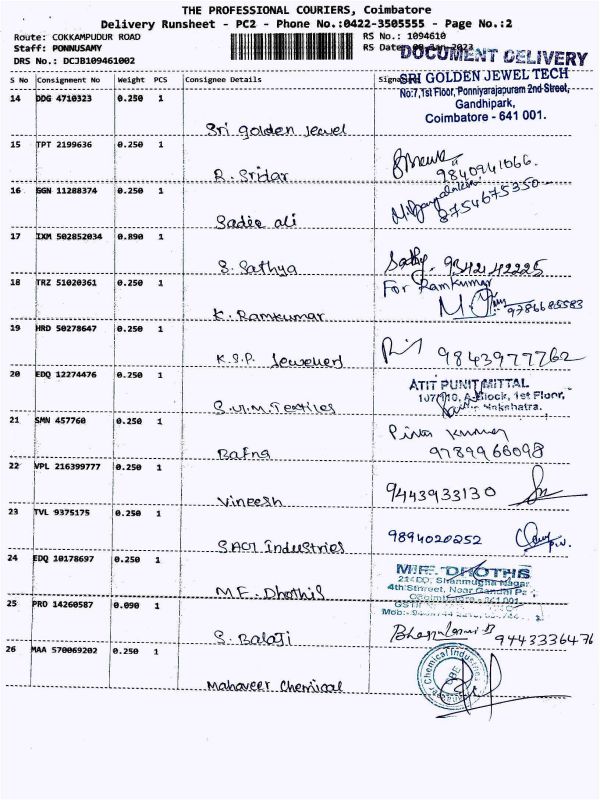 THE PROFESSIONAL COURIERS, Coimbatore
Delivery Runsheet - PC2 - Phone No.:0422-3505555 - Page No.:2
Route: COKKAMPUDUR ROAD
RS No.: 1094610
Staff: PONNUSAMY
RS Date: 2023
DRS No.: DCJB109461002
DOCUMENT DELIVERY
S No Consignment No Weight PCS Consignee Details
SRI GOLDEN JEWEL TECH
No:7,1st Floor, Ponniyarajapuram 2nd Street,
Gandhipark,
Coimbatore - 641 001.
14 DDG 4710323 0.250 1
Sri golden jewel
15 TPT 2199636 0.250 1
R. Sridar
9840941066.
16 GGN 11288374 0.250 1
Sadic ali
8754675350
17 IXM 502852034 0.890 1
S. Sathya
Sathy. 9342142225
18 TRZ 51020361 0.250 1
K. Ramkumar
For Ramkumar
9786685583
19 HRD 50278647 0.250 1
K.S.P. Jewellers
9843977762
20 EDQ 12274476 0.250 1
S.U.M. Textiles
ATIT PUNIT MITTAL
107/10, A-Block, 1st Floor,
Nakshatra.
21 SMN 457760 0.250 1
Rafna
Kumar
9789966098
22 VPL 216399777 0.250 1
Vineesh
9443933130
23 TVL 9375175 0.250 1
SAGI industries
9894020252
24 EDQ 10178697 0.250 1
M.F. Dhothis
M.F. DHOTHIS
214DD, Shanmugha Nagar
4th Street, Near Gandhi
25 PRO 14260587 0.090 1
S. Balaji
9443336476
26 MAA 570069202 0.250 1
Mahaveer Chemical
Chemical Industries
CBE